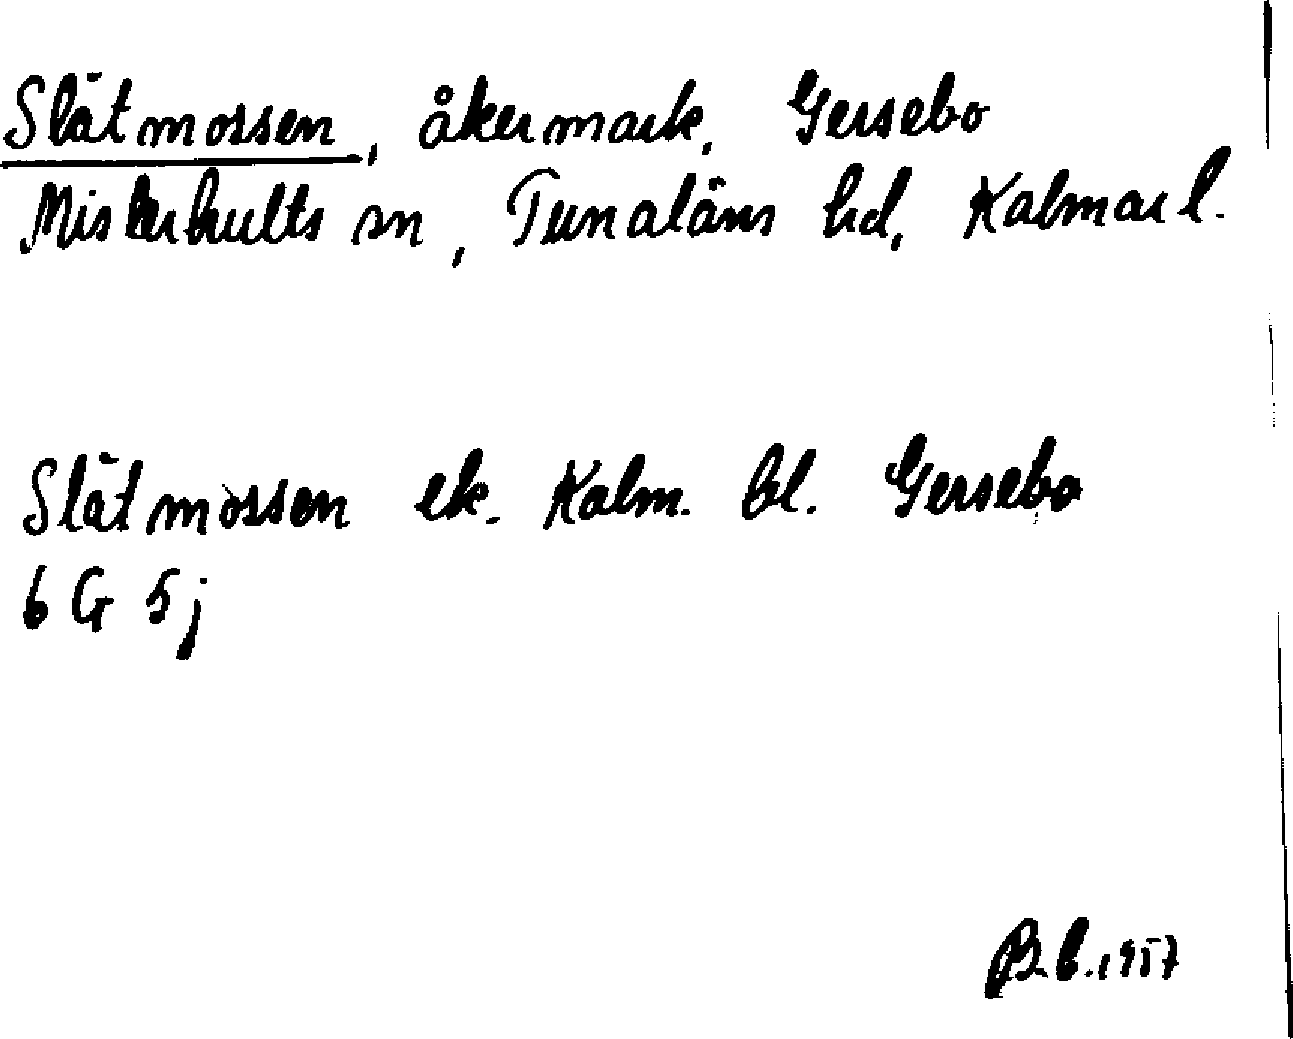 Slätmossen, åkermark, Gersebo
Misterhults sn, Tunaläns hd, Kalmar l.
Slätmossen ek. Kalm. bl. Gersebo
6 G 5j
B.C. 1957